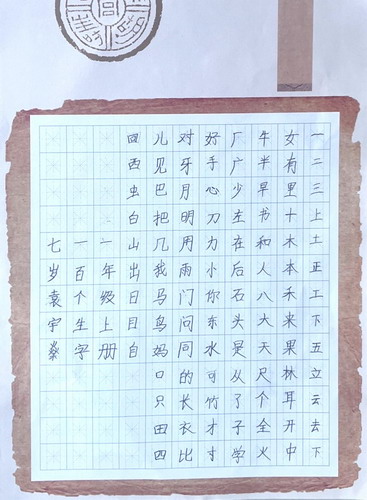 一二三上土正工下五立云去下
女有里十木本禾来果林耳开中
牛半早书和人八大天尺个全火
厂广少左在后石头是从了子学
好手心刀力小你东水可竹才寸
对牙月明用雨门问同的长衣比
儿见巴把几我马鸟妈口只田四
四西虫白山出日目自
一年级上册
一百个生字
七岁袁宇燊